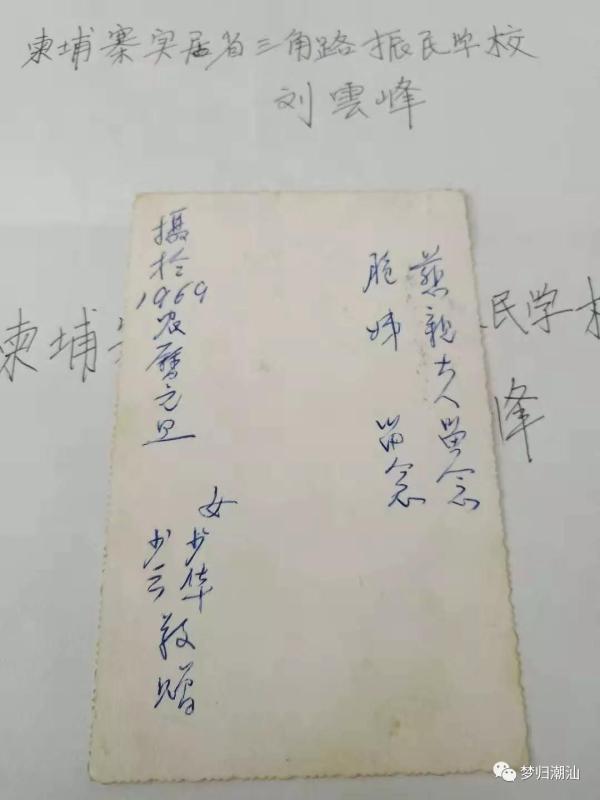 柬埔寨实居省三角路振民学校
刘雲峰
柬埔
民学校
峰
慈親大人留念
胞妹 留念
攝於1969农曆元旦
女少华
少云敬赠
梦归潮汕